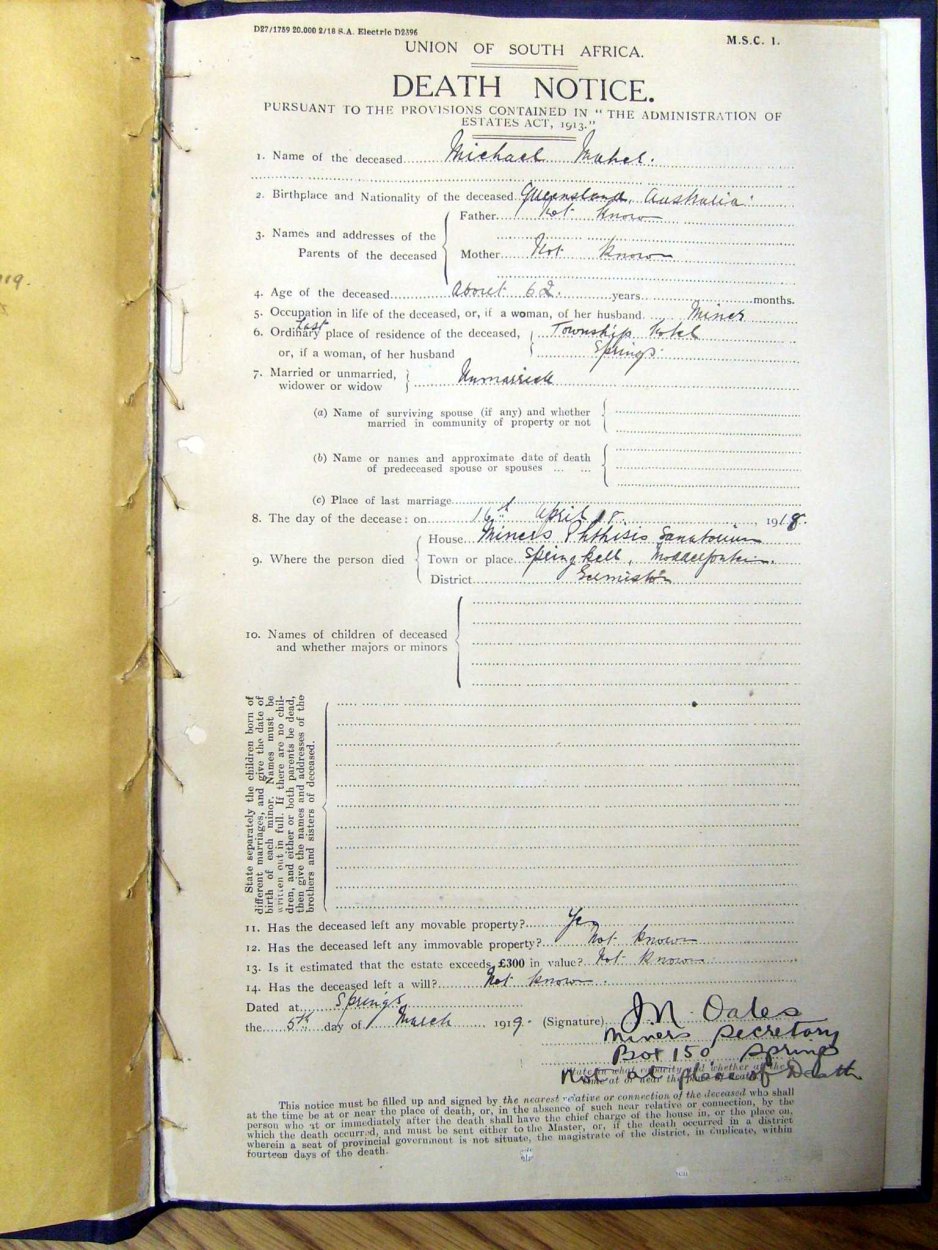 D27/1759 20.000 2/18 S.A. Electric D2396
M.S.C. 1.
UNION OF SOUTH AFRICA.
DEATH NOTICE.
PURSUANT TO THE PROVISIONS CONTAINED IN "THE ADMINISTRATION OF
ESTATES ACT, 1913."
1. Name of the deceased Michael
2. Birthplace and Nationality of the deceased Queensland, Australia
3. Names and addresses of the Parents of the deceased
Father Not know
Mother Not known
4. Age of the deceased about 62 years months.
5. Occupation in life of the deceased, or, if a woman, of her husband Miner
Last
6. Ordinary place of residence of the deceased, Township Hotel
or, if a woman, of her husband Springs
7. Married or unmarried, Unmarried
widower or widow
(a) Name of surviving spouse (if any) and whether
married in community of property or not
(b) Name or names and approximate date of death
of predeceased spouse or spouses ... ...
(c) Place of last marriage
8. The day of the decease: on 16th April 18. 1918.
9. Where the person died
House Miners Phthisis Sanatorium
Town or place Springkell, Modderfontein.
District Germiston
10. Names of children of deceased
and whether majors or minors
State separately the children born of
different marriages, and give the date of
birth of each minor. Names must be
written out in full. If there are no chil-
dren, and either or both parents be dead,
then give the names and addresses of the
brothers and sisters of deceased.
11. Has the deceased left any movable property? Yes
12. Has the deceased left any immovable property? Not known
13. Is it estimated that the estate exceeds £300 in value? Not known
14. Has the deceased left a will? Not known.
Dated at Springs
the 5th day of March 1919. (Signature) J M Oates
Miners Secretary
Box 150 Springs
Not at place of Death
This notice must be filled up and signed by the nearest relative or connection of the deceased who shall
at the time be at or near the place of death, or, in the absence of such near relative or connection, by the
person who at or immediately after the death shall have the chief charge of the house in, or the place on,
which the death occurred, and must be sent either to the Master, or, if the death occurred in a district
wherein a seat of provincial government is not situate, the magistrate of the district, in duplicate, within
fourteen days of the death.